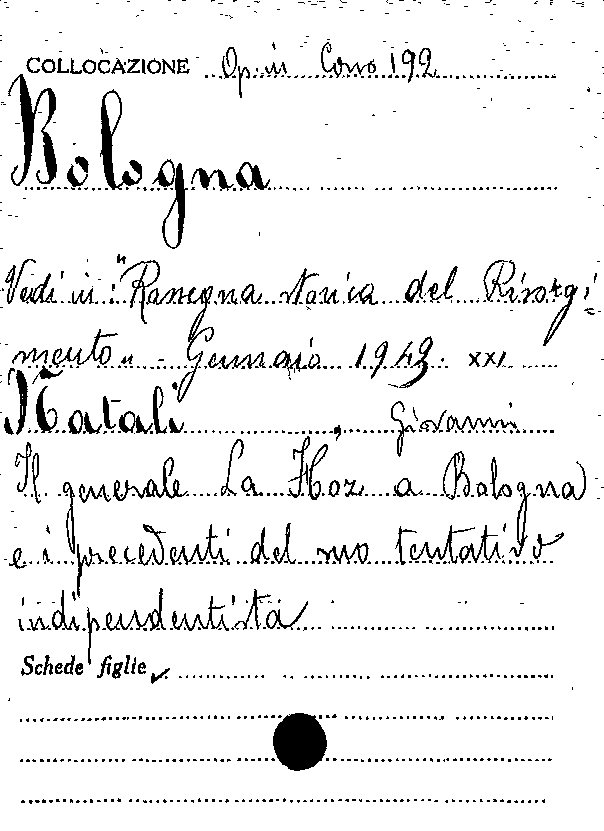 COLLOCAZIONE Op. in Corso 192
Bologna
Vedi in: "Rassegna storica del Risorgi=
mento" - Gennaio 1943. XXI
Natali, Giovanni
Il generale La Hoz a Bologna
e i precedenti del suo tentativo
indipendentista
Schede figlie